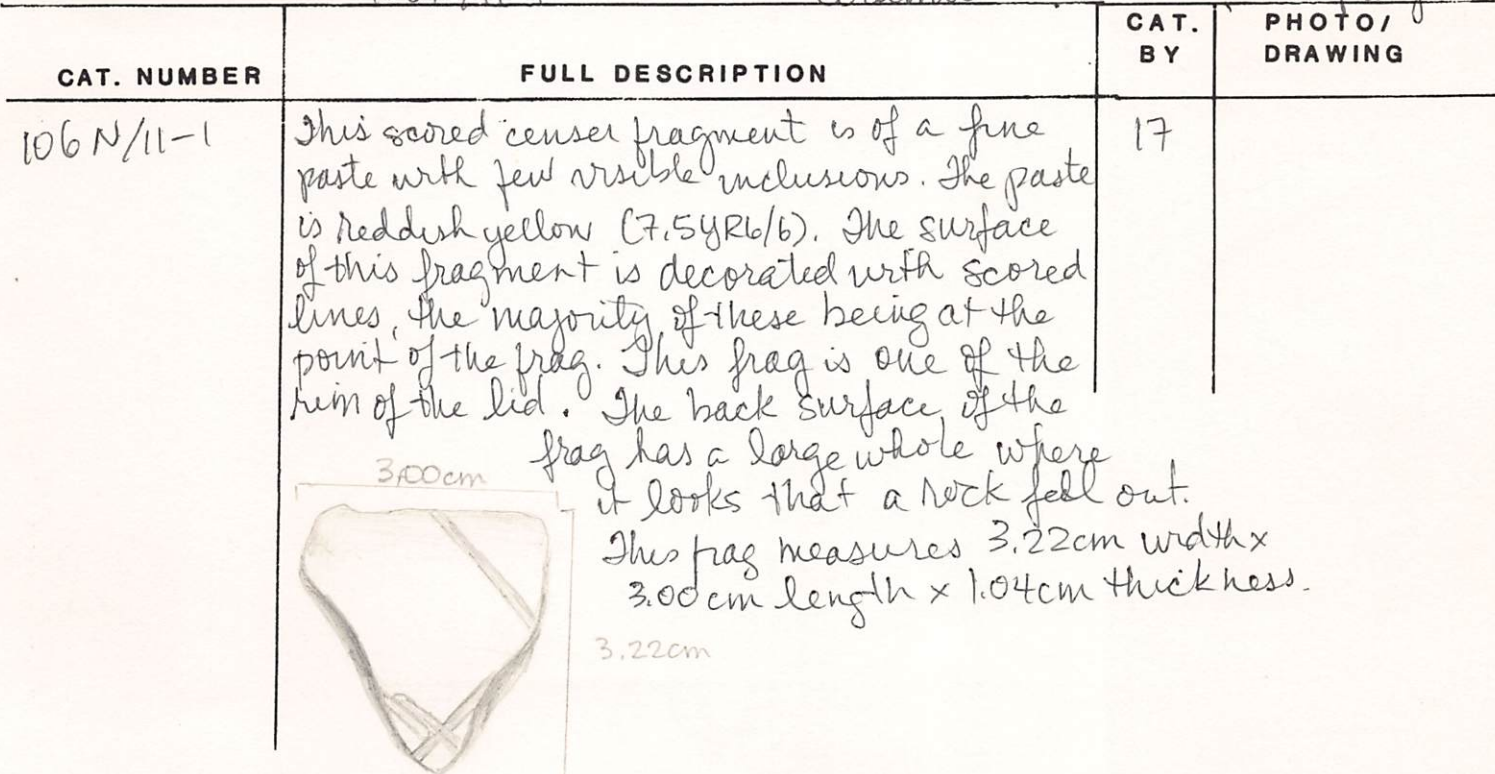 CAT. NUMBER
FULL DESCRIPTION
CAT.
BY
PHOTO/
DRAWING
106 N/11-1
This scored censer fragment is of a fine
paste with few visible inclusions. The paste
is reddish yellow (7.5YR6/6). The surface
of this fragment is decorated with scored
lines, the majority of these being at the
point of the frag. This frag is one of the
rim of the lid. The back surface of the
frag has a large whole where
it looks that a rock fell out.
This frag measures 3.22cm width x
3.00 cm length x 1.04cm thickness.
17
3.00cm
3.22cm